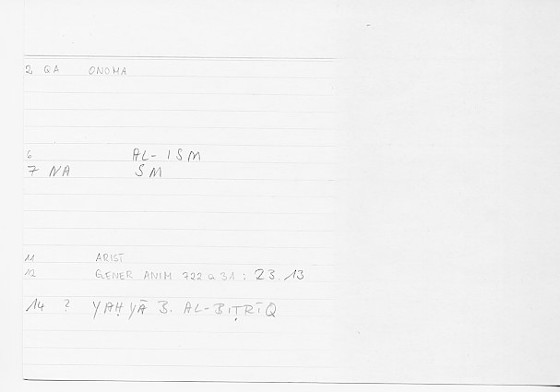 2 GA ONOMA
6 AL-ISM
7 NA SM
11 ARIST
12 GENER ANIM 722 a 31 : 23.13
14 ? YAḤYĀ B. AL-BIṬRĪQ